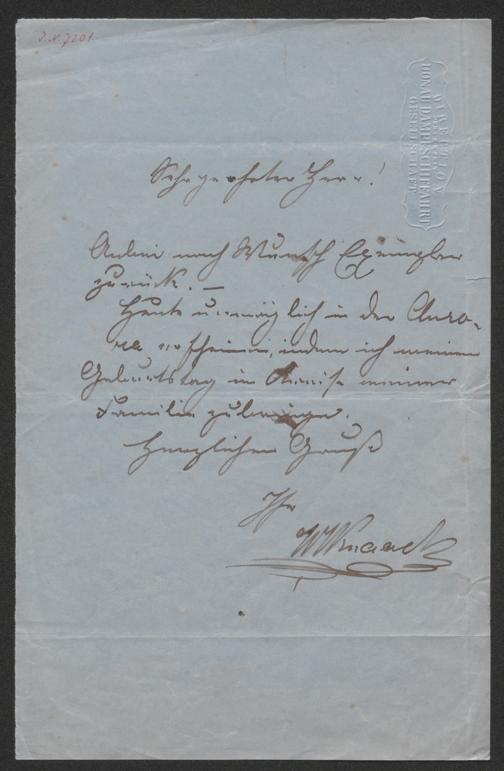 J.N. 7201
DONAU DAMPFSCHIFFFAHRT
GESELLSCHAFT
Sehr geehrter Herr!
Anbei nach Wunsch Exemplar
zurück. –
Heute unmöglich in der Auro-
ra erscheinen, indem ich meinen
Geburtstag im Kreise meiner
Familie zubringe.
Herzlichen Gruß
Ihr
WKnaack